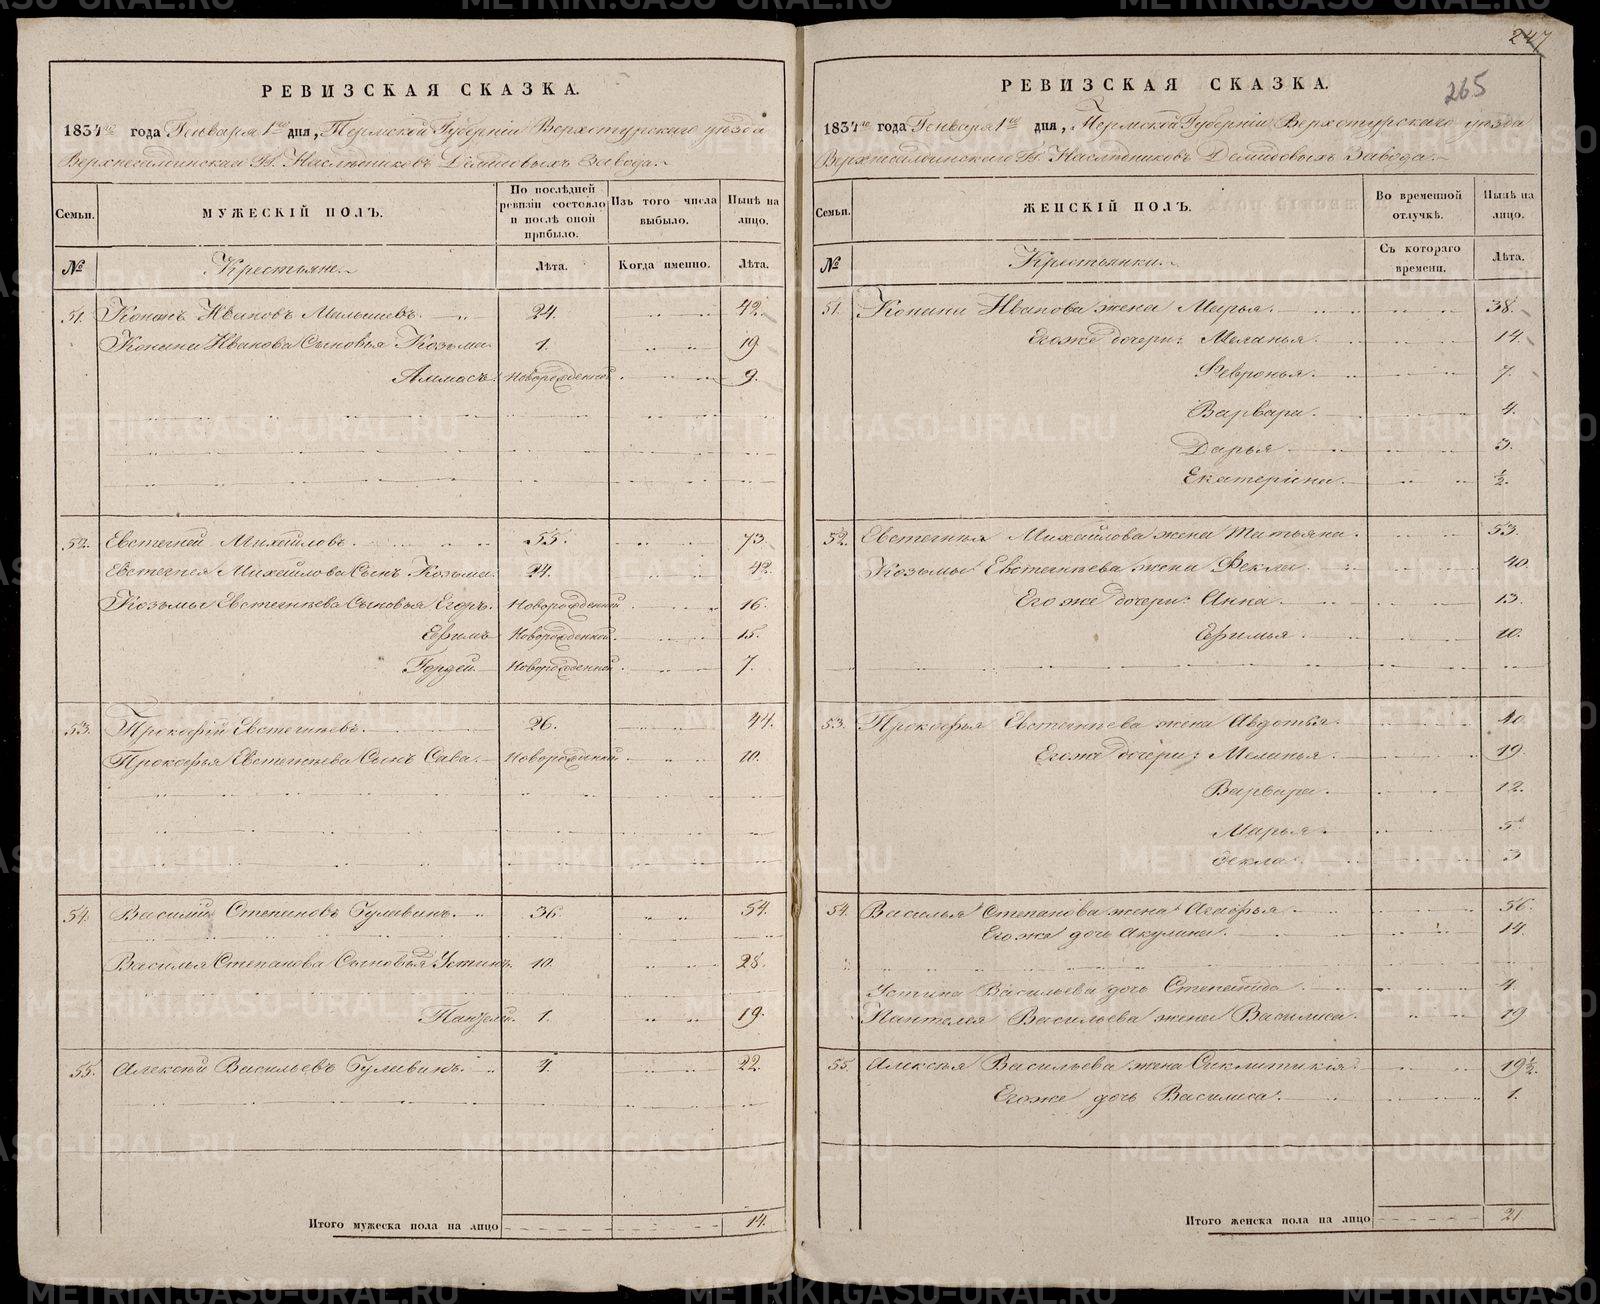 247
265
РЕВИЗСКАЯ СКАЗКА.
1834го года Генваря 1го дня, Пермской Губерніи Верхотурскаго уезда
Верхнесалдинскаго Гг. Наследниковъ Демидовыхъ Завода.
Семьи.
МУЖЕСКІЙ ПОЛЪ.
По послѣдней ревизіи состояло и послѣ оной прибыло.
Изъ того числа выбыло.
Нынѣ на лицо.
№
Крестьяне.
Лѣта.
Когда именно.
Лѣта.
51. Кононъ Ивановъ Малышевъ. 24. 42.
Конона Иванова Сыновья Козьма 1. 19
Новорожденный. 9.
52. Евстегней Михайловъ. 55. 73.
Евстегнея Михайлова Сынъ Козьма. 24. 42.
Козьмы Евстегнеева Сыновья Егоръ. Новорожденный 16.
Ефимъ Новорожденной. 15.
Гордей Новорожденный 7.
53. Прокофій Евстегнеевъ. 26. 44.
Прокофья Евстегнеева Сынъ Сава. Новорожденный 10.
54. Василій Степановъ Гуливинъ. 36. 54.
Василья Степанова Сыновья Устинъ. 10. 28.
1. 19.
55. Алексей Васильевъ Гуливинъ. 4. 22.
Итого мужеска пола на лицо 14.
РЕВИЗСКАЯ СКАЗКА.
1834го года Генваря 1го дня, Пермской Губерніи Верхотурскаго уезда
Верхнесалдинскаго Гг. Наследниковъ Демидовыхъ Завода.
Семьи.
ЖЕНСКІЙ ПОЛЪ.
Во временной отлучкѣ.
Нынѣ на лицо.
№
Крестьянки.
Съ котораго времени.
Лѣта.
51. Конона Иванова жена Марья. 38.
Его же дочери: Меланья. 14.
Февронья. 7.
Варвара. 4.
Дарья 3.
Екатерина. ½.
52. Евстегнея Михайлова жена Татьяна. 53.
Козьмы Евстегнеева жена Фекла. 40.
Его же дочери: Анна. 13.
Ефимья. 10.
53. Прокофья Евстегнеева жена Авдотья. 40
Его же дочери: Меланья. 19.
Варвара. 12.
Марья. 5.
Фекла. 3
54. Василья Степанова жена Агафья 56.
Его же дочь Акулина. 14.
Устина Васильева дочь Степанида. 4.
Пантелея Васильева жена Василиса. 19
55. Алексея Васильева жена Секлитикія. 19½.
Его же дочь Василиса. 1.
Итого женска пола на лицо 21
METRIKI.GASO-URAL.RU